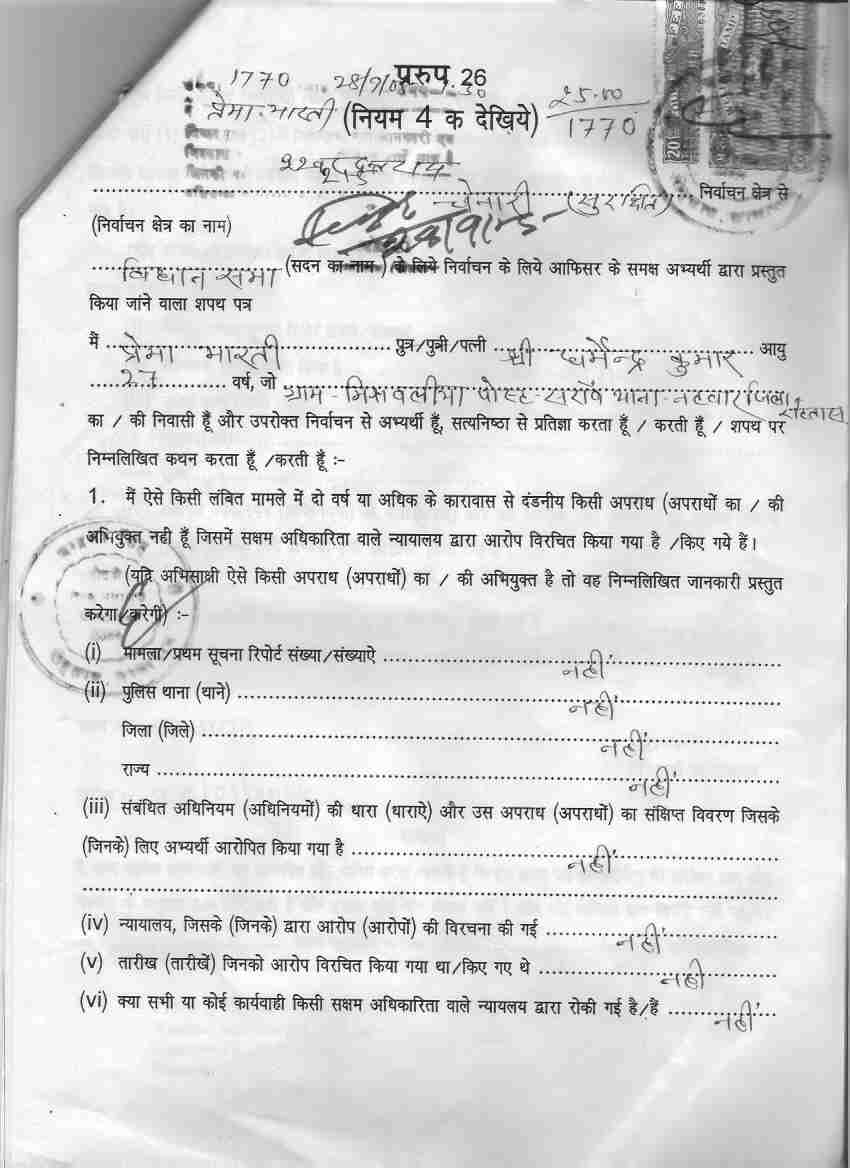 प्ररुप 26
1770 28/9/05
प्रेमा भारती (नियम 4 क देखिये) 25.00
1770
चेनारी (सुरक्षित) निर्वाचन क्षेत्र से
(निर्वाचन क्षेत्र का नाम)
विधान सभा (सदन का नाम) के लिये निर्वाचन के लिये आफिसर के समक्ष अभ्यर्थी द्वारा प्रस्तुत
किया जांने वाला शपथ पत्र
मैं प्रेमा भारती पुत्र/पुत्री/पत्नी श्री धर्मेन्द्र कुमार आयु
27 वर्ष, जो ग्राम-मिसवलीया पोस्ट-सरॉव थाना-नटवार जिला रोहतास
का / की निवासी हूँ और उपरोक्त निर्वाचन से अभ्यर्थी हूँ, सत्यनिष्ठा से प्रतिज्ञा करता हूँ / करती हूँ / शपथ पर
निम्नलिखित कथन करता हूँ /करती हूँ :-
1. मैं ऐसे किसी लंबित मामले में दो वर्ष या अधिक के कारावास से दंडनीय किसी अपराध (अपराधों का / की
अभियुक्त नही हूँ जिसमें सक्षम अधिकारिता वाले न्यायालय द्वारा आरोप विरचित किया गया है /किए गये हैं।
(यदि अभिसाक्षी ऐसे किसी अपराध (अपराधों) का / की अभियुक्त है तो वह निम्नलिखित जानकारी प्रस्तुत
करेगा/करेगी) :-
(i) मामला/प्रथम सूचना रिपोर्ट संख्या/संख्याऐ नहीं
(ii) पुलिस थाना (थाने) नहीं
जिला (जिले) नहीं
राज्य नहीं
(iii) संबंधित अधिनियम (अधिनियमों) की धारा (धाराऐ) और उस अपराध (अपराधों) का संक्षिप्त विवरण जिसके
(जिनके) लिए अभ्यर्थी आरोपित किया गया है नहीं
(iv) न्यायालय, जिसके (जिनके) द्वारा आरोप (आरोपों) की विरचना की गई नहीं
(v) तारीख (तारीखें) जिनको आरोप विरचित किया गया था/किए गए थे नही
(vi) क्या सभी या कोई कार्यवाही किसी सक्षम अधिकारिता वाले न्यायलय द्वारा रोकी गई है/हैं नहीं